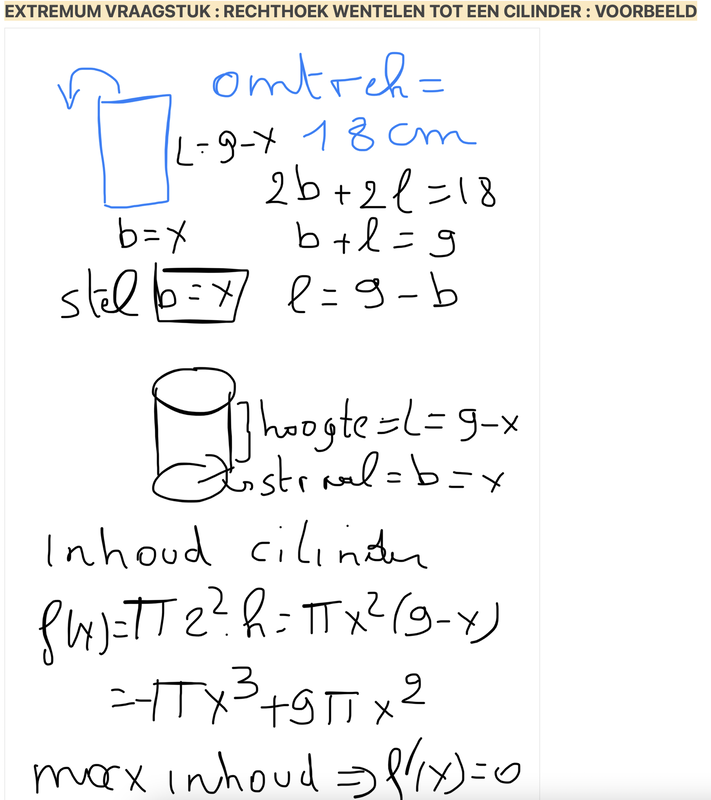 EXTREMUM VRAAGSTUK : RECHTHOEK WENTELEN TOT EEN CILINDER : VOORBEELD
omtrek =
18 cm
L = 9-x
2b + 2l = 18
b = x
b + l = 9
stel b = x
l = 9 - b
hoogte = L = 9-x
straal = b = x
Inhoud cilinder
f(x) = πr².h = πx²(9-x)
= -πx³ + 9πx²
max inhoud ⇒ f'(x) = 0